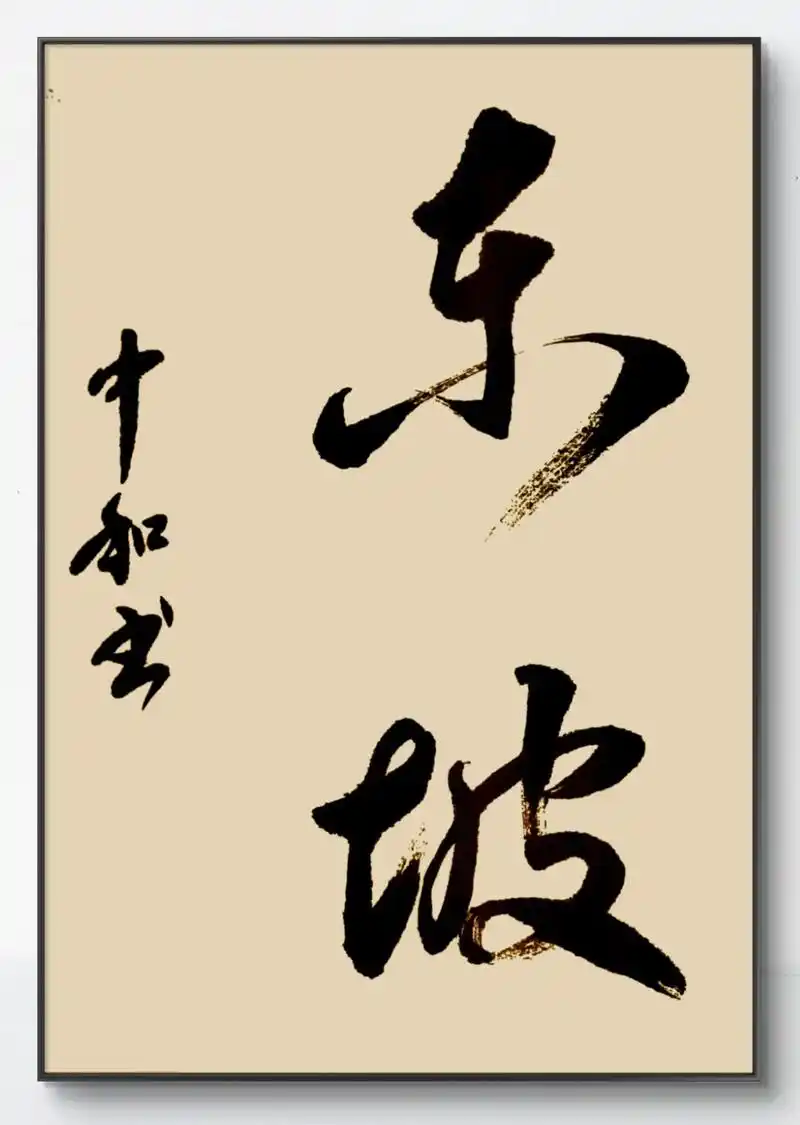 东坡
中和书